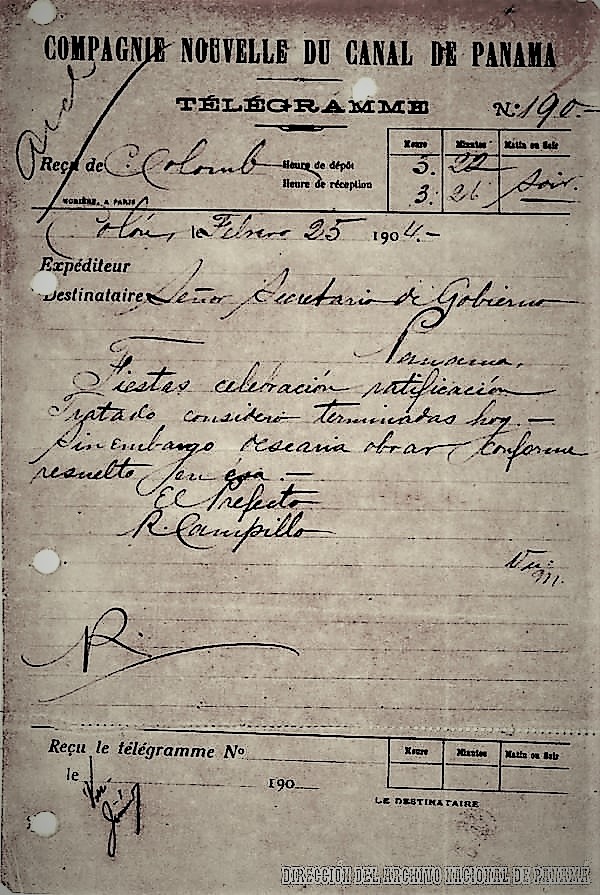 COMPAGNIE NOUVELLE DU CANAL DE PANAMA
TÉLÉGRAMME
N.º 190.-
Reçu de C. Colomb
Heure de dépôt
Heure de réception
Heure Minutes Matin ou Soir
3. 22
3. 26 Soir.
MORIÈRE, A PARIS
Colón, le Febrero 25 1904.-
Expéditeur
Destinataire Señor Secretario de Gobierno
Panama.
Fiestas celebración ratificación
Tratado considero terminadas hoy.-
Sin embargo desearia obrar conforme
resuelto en esa.-
El Prefecto
R. Campillo
R.
Reçu le télégramme Nº
le 190
Heure Minutes Matin ou Soir
LE DESTINATAIRE
DIRECCIÓN DEL ARCHIVO NACIONAL DE PANAMÁ